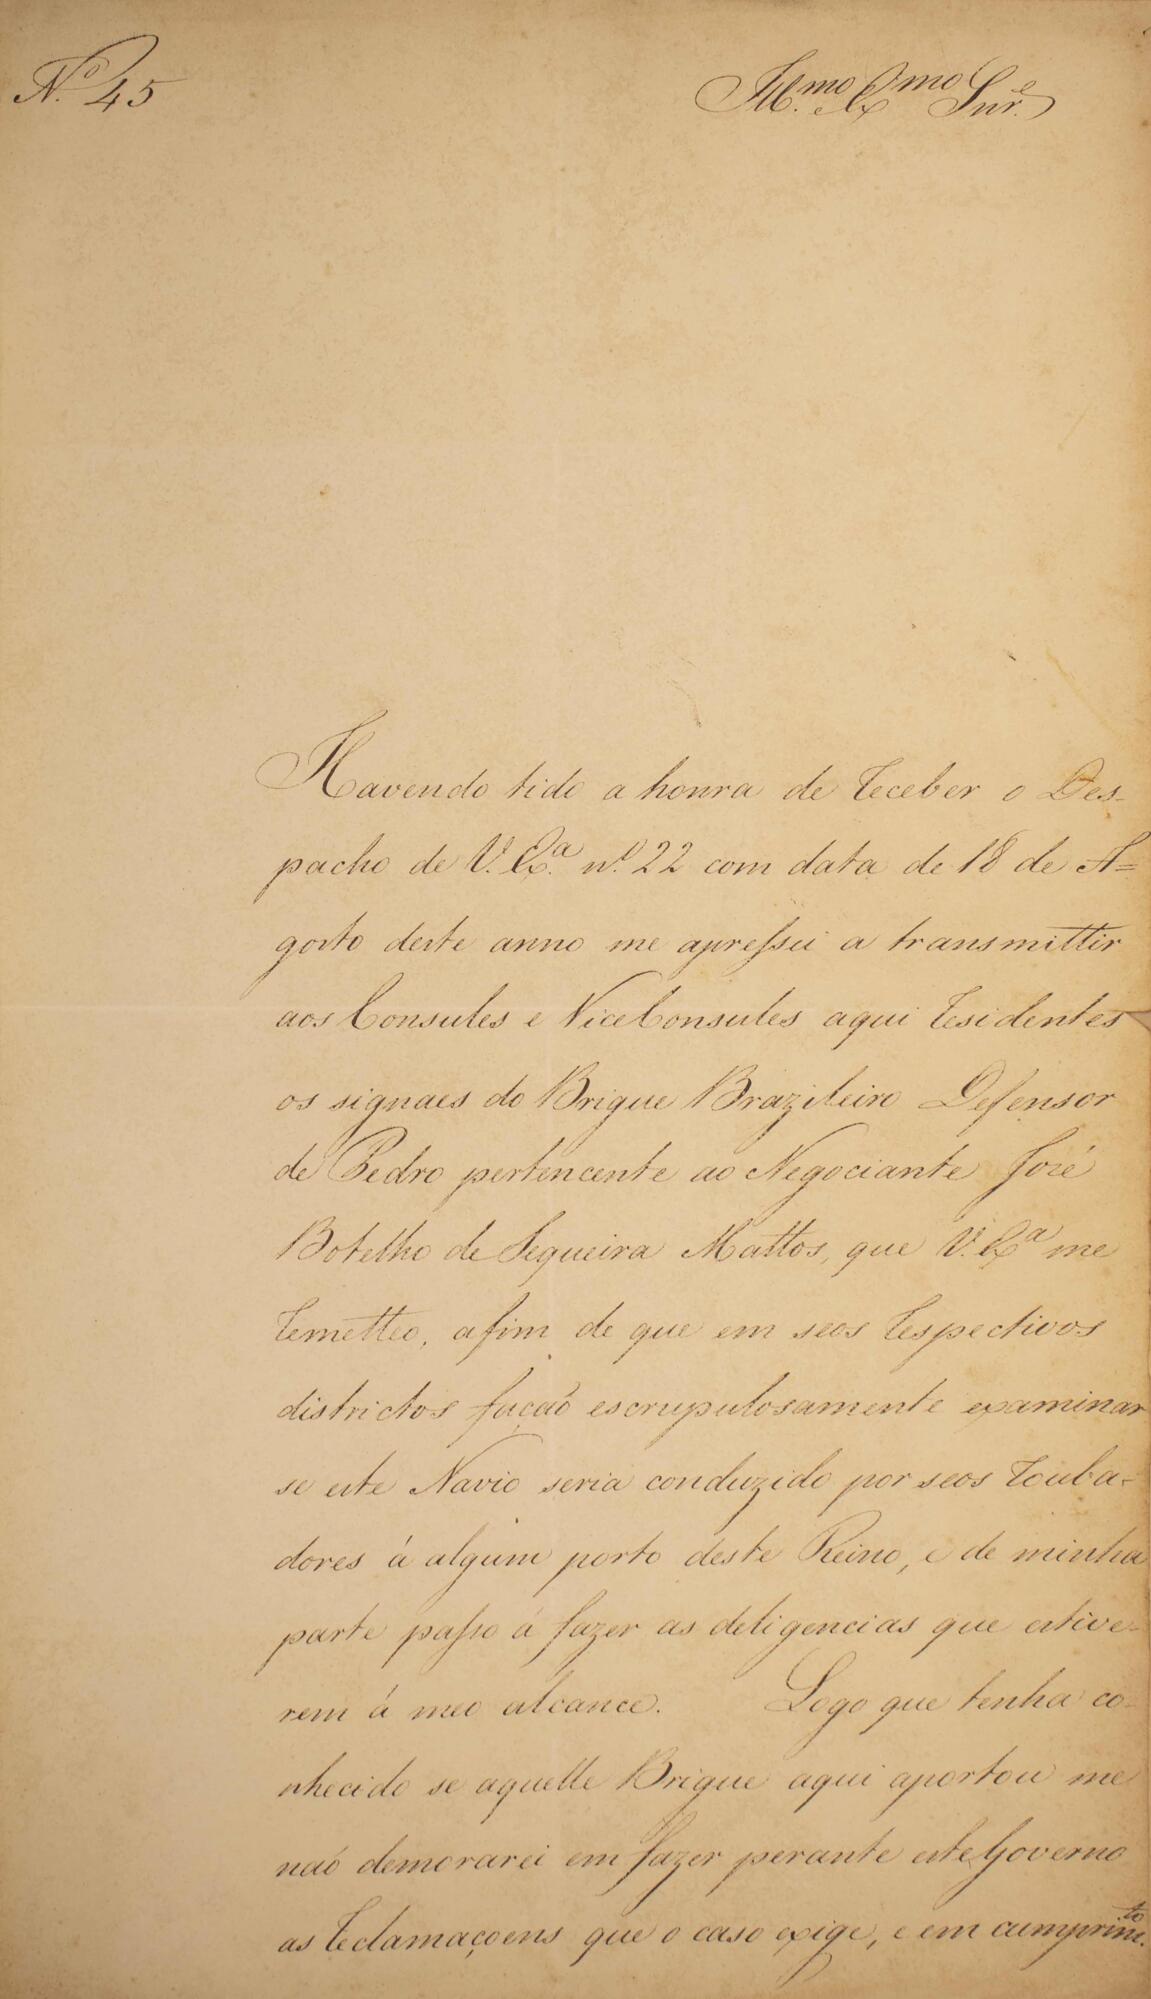 N.º 45
Ill.mo Ex.mo Snr.e
Havendo tido a honra de receber o Des-
pacho de V. Ex.a nº 22 com data de 18 de A=
gosto deste anno me apressei a transmittir
aos Consules e Vice Consules aqui residentes
os signaes do Brigue Brazileiro Defensor
de Pedro pertencente ao Negociante José
Botelho de Sequeira Mattos, que V. Ex.a me
remetteo, afim de que em seos respectivos
districtos fação escrupulosamente examinar
se este Navio seria conduzido por seos rouba-
dores à algum porto deste Reino, e de minha
parte passo á fazer as deligencias que estive-
rem á meo alcance. Logo que tenha co-
nhecido se aquelle Brigue aqui aportou me
naõ demorarei em fazer perante este Governo
as reclamaçoens que o caso exige, e em cumprim.to